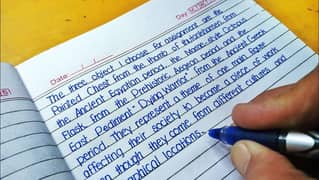 Day
Date: / /
The three object I choose for assignment are the
Painted Chest from the thomb of tutankhamen form
the Ancient Egyptian period, the Marine-style Octopus
Flask from the Prehistoric Aegean period, and the
East Pediment "Dying Warrior" from the Ancient Greek
period. They represent a theme of one main issue
affecting their society to become a piece of work,
even though they come from different cultures and
locations.